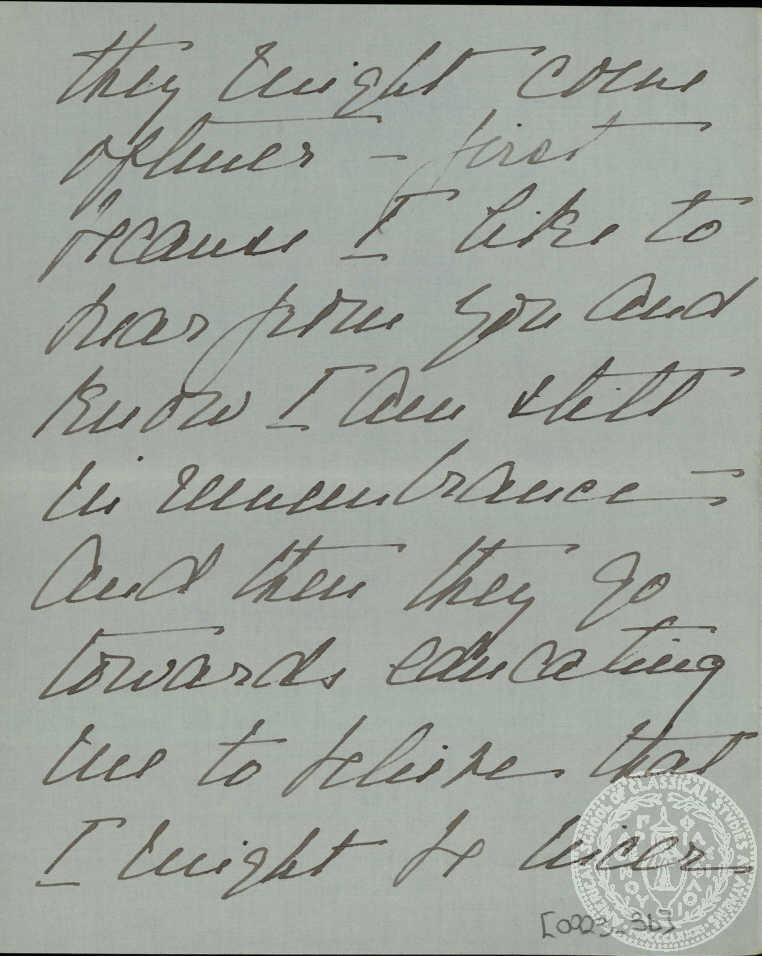 they might come
oftener - first
because I like to
hear from you and
know I am still
in remembrance -
And then they go
towards educating
me to believe that
I might be nicer -
[0023_3b]